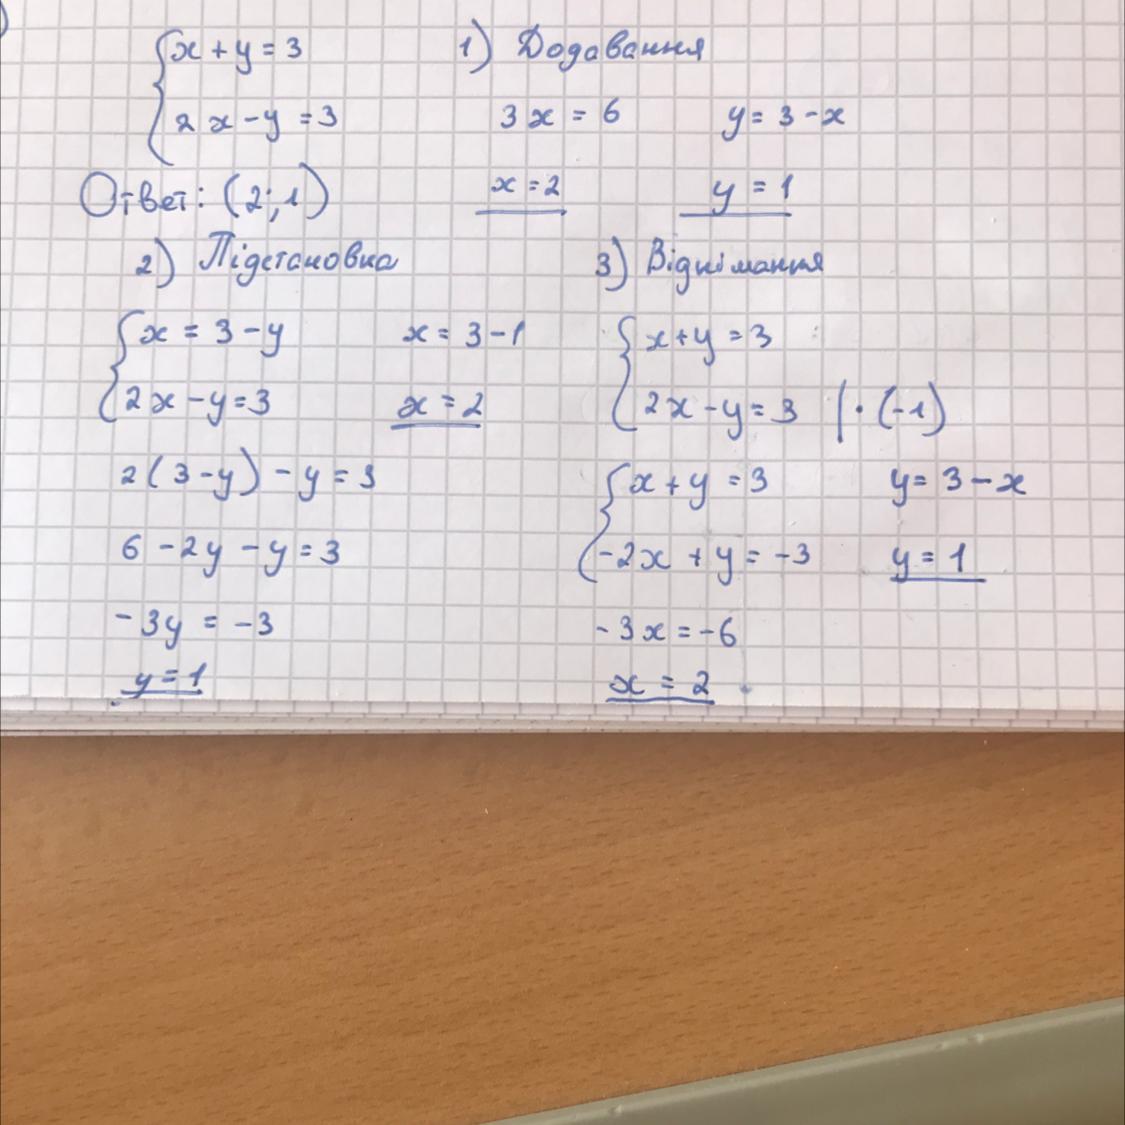 x + y = 3
2x - y = 3
Ответ: (2; 1)
1) Додавання
3x = 6
y = 3 - x
x = 2
y = 1
2) Підстановка
x = 3 - y
2x - y = 3
x = 3 - 1
x = 2
2(3 - y) - y = 3
6 - 2y - y = 3
-3y = -3
y = 1
3) Віднімання
x + y = 3
2x - y = 3 | · (-1)
x + y = 3
-2x + y = -3
y = 3 - x
y = 1
-3x = -6
x = 2